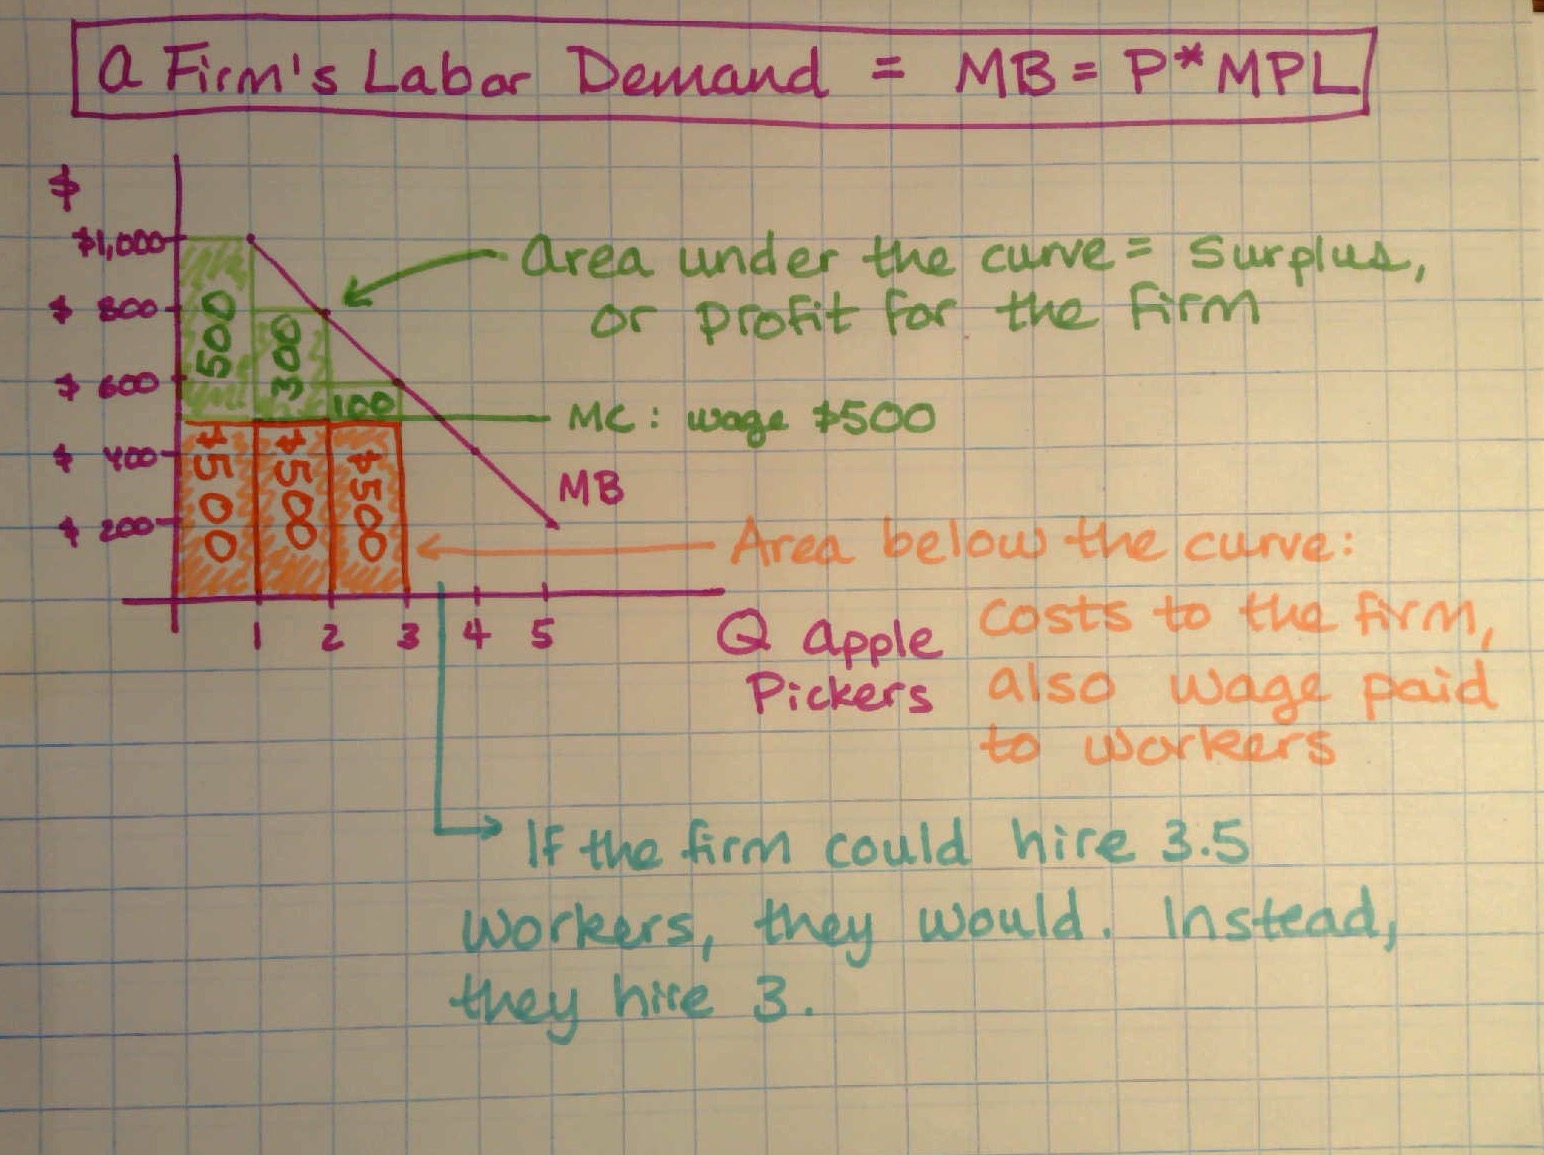 A Firm's Labor Demand = MB = P*MPL
$
$1,000
$ 800
$ 600
$ 400
$ 200
500
300
100
$500
$500
$500
Area under the curve = Surplus,
or profit for the firm
MC: wage $500
MB
Area below the curve:
costs to the firm,
also wage paid
to workers
1 2 3 4 5
Q apple
Pickers
If the firm could hire 3.5
workers, they would. Instead,
they hire 3.